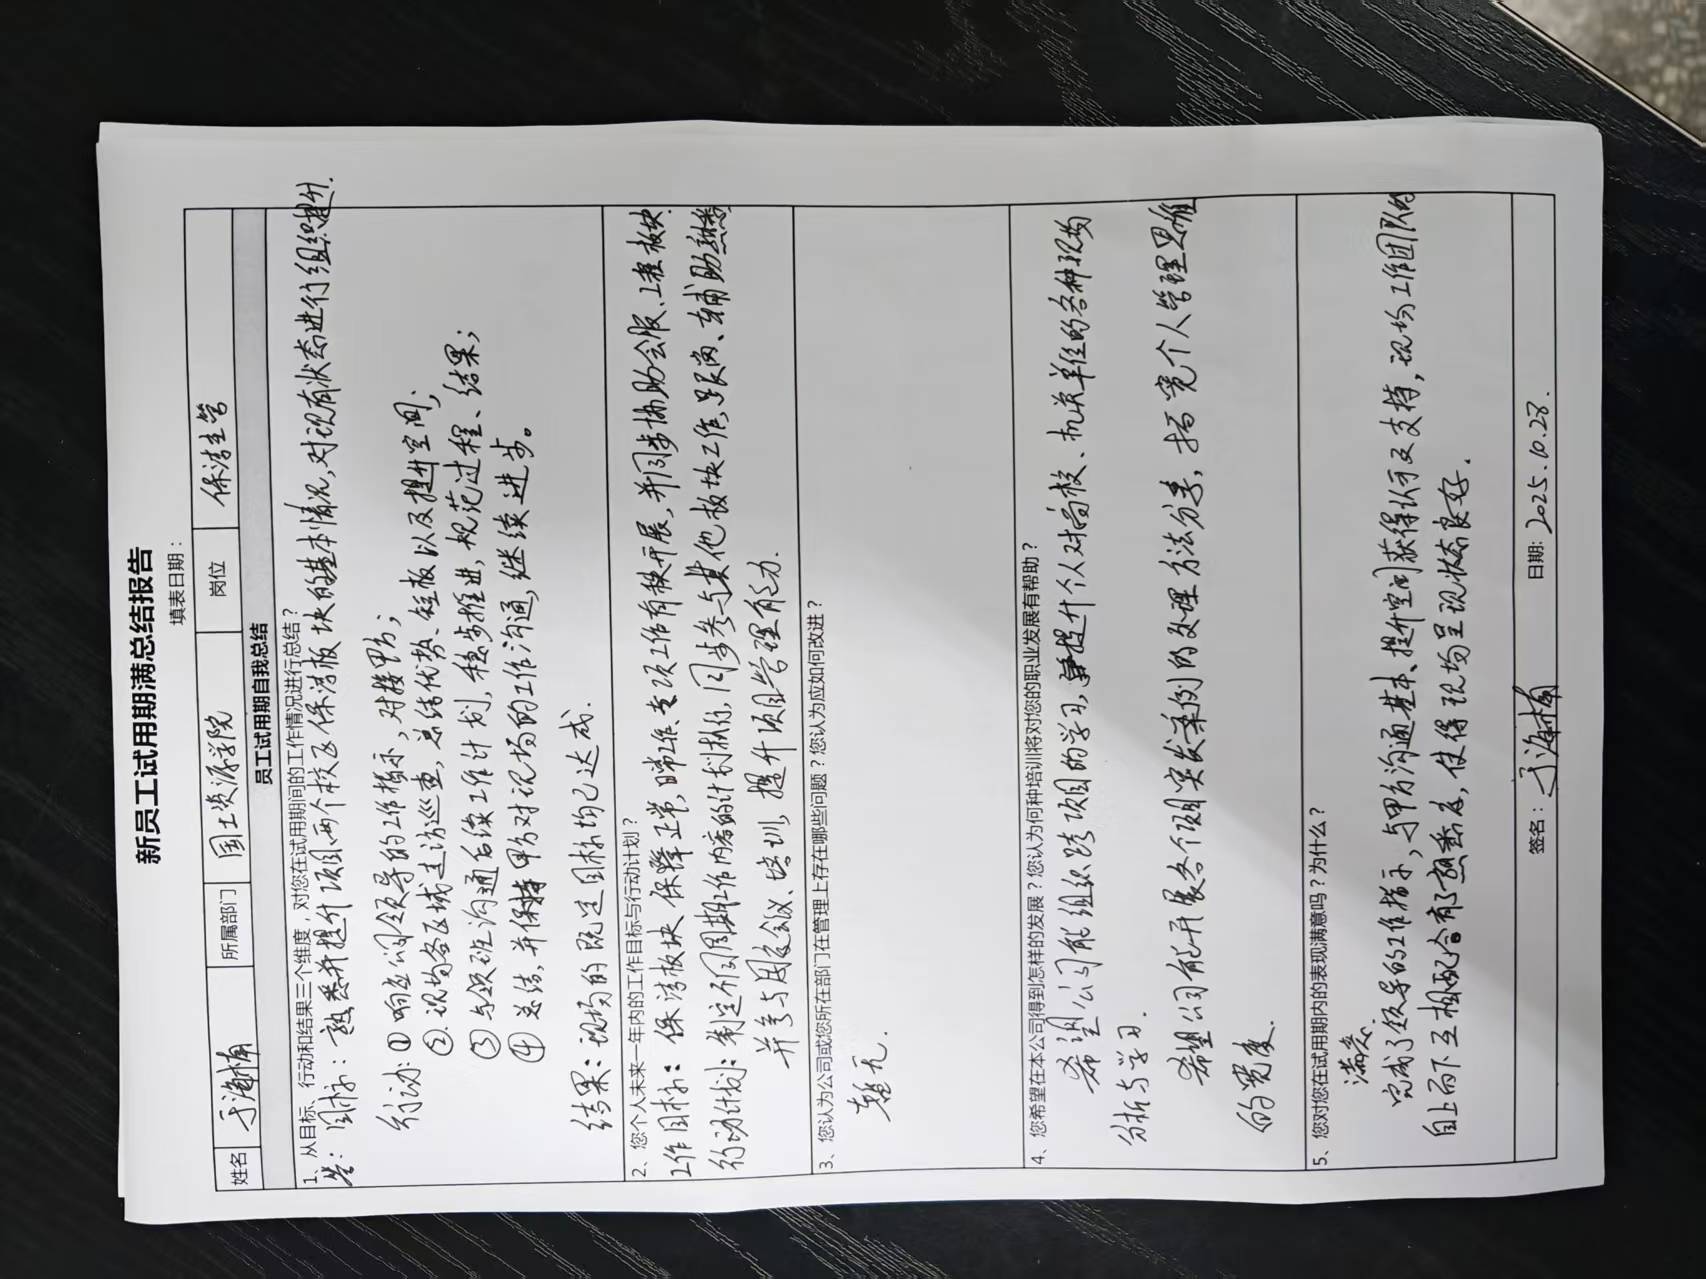 新员工试用期满总结报告
填表日期：
姓名 于海楠 所属部门 国土资源学院 岗位 保洁主管
员工试用期自我总结
1、从目标、行动和结果三个维度，对您在试用期间的工作情况进行总结？
答：目标：熟悉并提升项目两个校区保洁板块的基本情况，对现有状态进行组织提升.
行动：①响应公司领导的工作指示，对接甲方；
②.现场各区域走访巡查，总结优势、短板以及提升空间；
③与领班沟通后续工作计划，稳步推进，规范过程、结果；
④总结，并保持甲方对现场的工作沟通，继续进步。
结果：现场的既定目标均已达成.
2、您个人未来一年内的工作目标与行动计划？
工作目标：保洁板块保障正常，日常工作、专项工作有秩开展，并同步协助会服、工程板块.
行动计划：制定不同周期工作内容的计划执行，同步参与其他板块工作，跟岗、辅助熟悉
并参与周度会议、培训，提升项目管理能力.
3、您认为公司或您所在部门在管理上存在哪些问题？您认为应如何改进？
暂无.
4、您希望在本公司得到怎样的发展？您认为何种培训将对您的职业发展有帮助？
希望公司能组织跨项目的学习，提升个人对高校、机关单位的各种现场
分析与学习.
希望公司能开展各个项目突发案例的处理方法分享，拓宽个人管理思维
的宽度.
5、您对您在试用期内的表现满意吗？为什么？
满意.
完成了领导的工作指示，与甲方沟通基本、提升空间获得认可及支持，现场工作团队的
自上而下互相配合都熟悉后，使得现场呈现状态良好.
签名： 于海楠 日期: 2025.10.28.